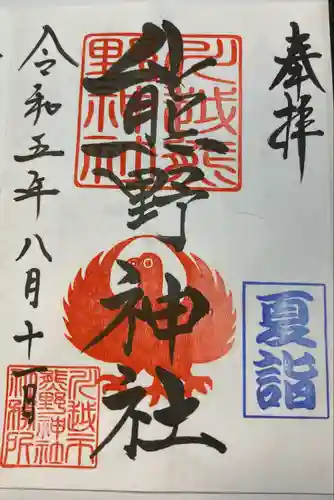 奉拝
川越熊野神社
熊野神社
夏詣
令和五年八月十一日
川越市熊野神社社務所